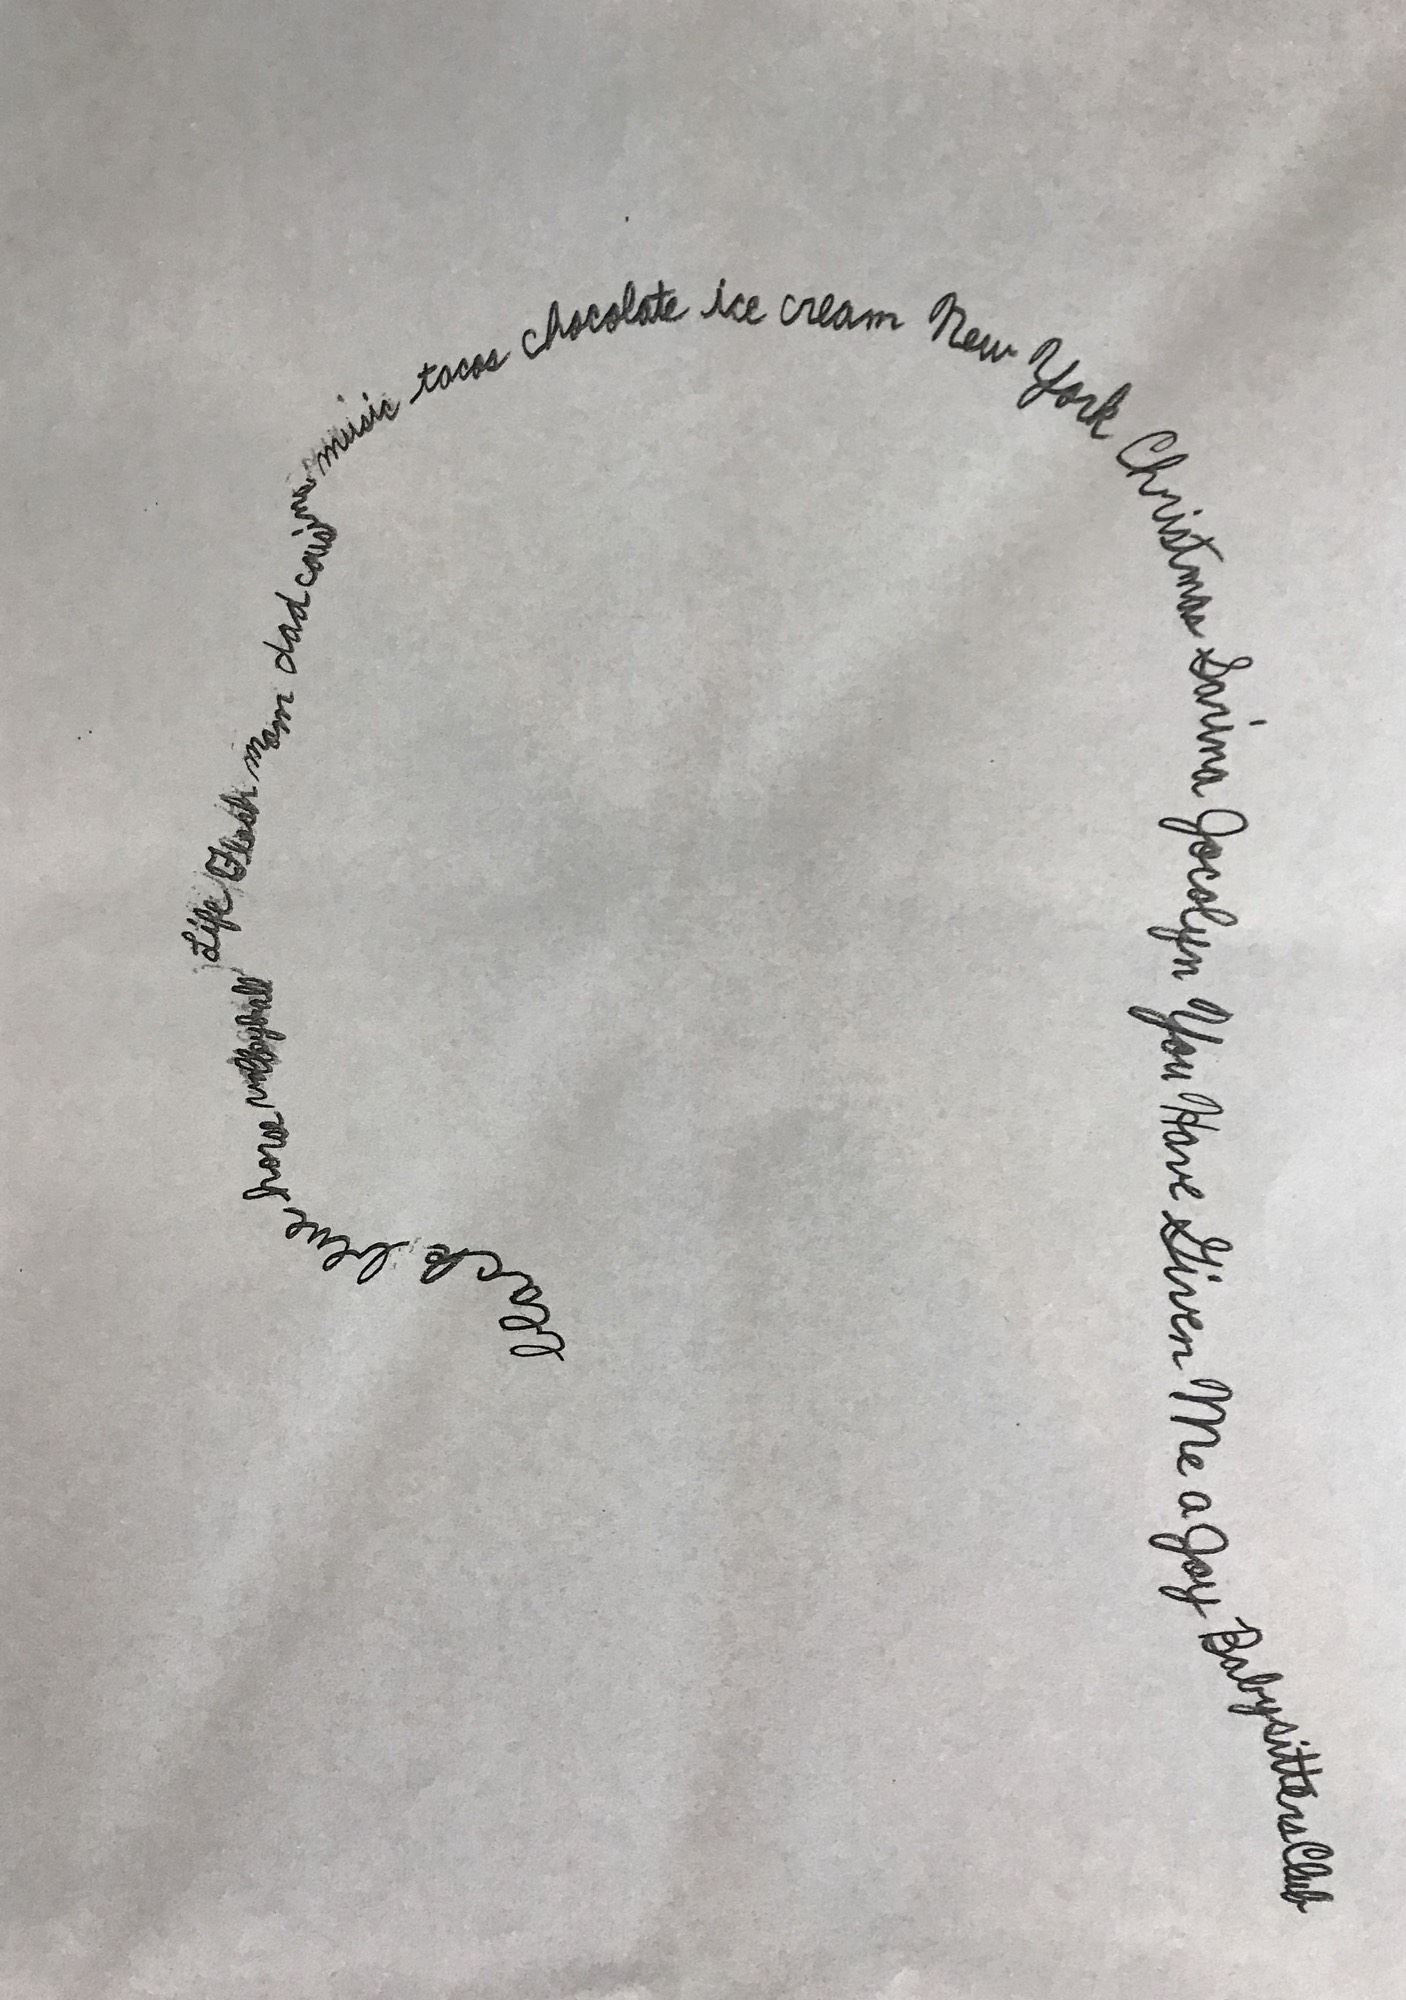 black blue horse volleyball Life Flash mom dad cousins music tacos chocolate ice cream New York Christmas Sarina Jocolyn You Have Given Me a Joy Babysitters Club